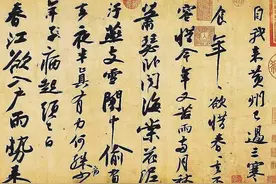 自我來黃州已過三寒
食年〃欲惜春〃去不
容惜今年又苦雨兩月秋
蕭瑟臥聞海棠花泥
汙燕支雪闇中偷負
去夜半真有力何殊病少
年子病起須已白
春江欲入戶雨勢來